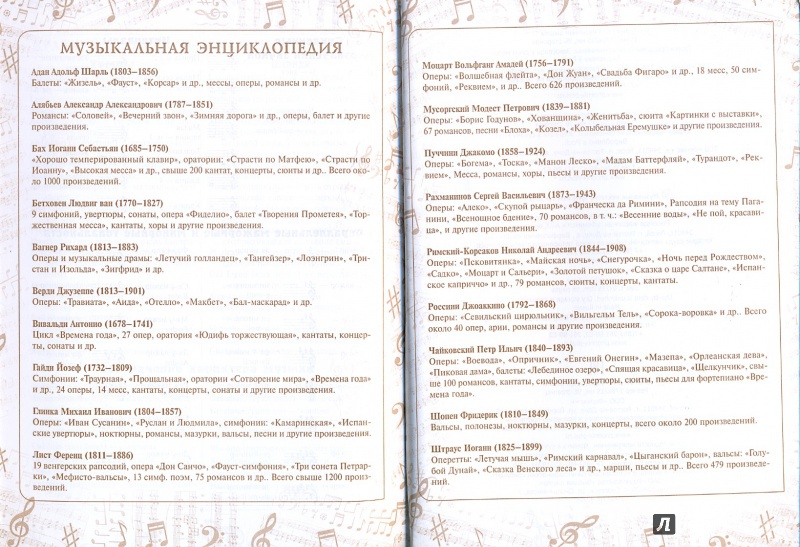 МУЗЫКАЛЬНАЯ ЭНЦИКЛОПЕДИЯ
Адан Адольф Шарль (1803–1856)
Балеты: «Жизель», «Фауст», «Корсар» и др., мессы, оперы, романсы и др.
Алябьев Александр Александрович (1787–1851)
Романсы: «Соловей», «Вечерний звон», «Зимняя дорога» и др., оперы, балет и другие
произведения.
Бах Иоганн Себастьян (1685–1750)
«Хорошо темперированный клавир», оратории: «Страсти по Матфею», «Страсти по
Иоанну», «Высокая месса» и др., свыше 200 кантат, концерты, сюиты и др.. Всего око-
ло 1000 произведений.
Бетховен Людвиг ван (1770–1827)
9 симфоний, увертюры, сонаты, опера «Фиделио», балет «Творения Прометея», «Тор-
жественная месса», кантаты, хоры и другие произведения.
Вагнер Рихард (1813–1883)
Оперы и музыкальные драмы: «Летучий голландец», «Тангейзер», «Лоэнгрин», «Три-
стан и Изольда», «Зигфрид» и др.
Верди Джузеппе (1813–1901)
Оперы: «Травиата», «Аида», «Отелло», «Макбет», «Бал-маскарад» и др.
Вивальди Антонио (1678–1741)
Цикл «Времена года», 27 опер, оратория «Юдифь торжествующая», кантаты, концер-
ты, сонаты и др.
Гайдн Йозеф (1732–1809)
Симфонии: «Траурная», «Прощальная», оратории «Сотворение мира», «Времена года»
и др., 24 оперы, 14 месс, кантаты, концерты, сонаты и другие произведения.
Глинка Михаил Иванович (1804–1857)
Оперы: «Иван Сусанин», «Руслан и Людмила», симфонии: «Камаринская», «Испан-
ские увертюры», ноктюрны, романсы, мазурки, вальсы, песни и другие произведения.
Лист Ференц (1811–1886)
19 венгерских рапсодий, опера «Дон Санчо», «Фауст-симфония», «Три сонета Петрар-
ки», «Мефисто-вальсы», 13 симф. поэм, 75 романсов и др.. Всего свыше 1200 произве-
дений.
Моцарт Вольфганг Амадей (1756–1791)
Оперы: «Волшебная флейта», «Дон Жуан», «Свадьба Фигаро» и др., 18 месс, 50 сим-
фоний, «Реквием», и др.. Всего 626 произведений.
Мусоргский Модест Петрович (1839–1881)
Оперы: «Борис Годунов», «Хованщина», «Женитьба», сюита «Картинки с выставки»,
67 романсов, песни «Блоха», «Козел», «Колыбельная Еремушке» и другие произведения.
Пуччини Джакомо (1858–1924)
Оперы: «Богема», «Тоска», «Манон Леско», «Мадам Баттерфляй», «Турандот», «Рек-
вием», Месса, романсы, хоры, пьесы и другие произведения.
Рахманинов Сергей Васильевич (1873–1943)
Оперы: «Алеко», «Скупой рыцарь», «Франческа да Римини», Рапсодия на тему Пага-
нини, «Всенощное бдение», 70 романсов, в т. ч.: «Весенние воды», «Не пой, красави-
ца», и другие произведения.
Римский-Корсаков Николай Андреевич (1844–1908)
Оперы: «Псковитянка», «Майская ночь», «Снегурочка», «Ночь перед Рождеством»,
«Садко», «Моцарт и Сальери», «Золотой петушок», «Сказка о царе Салтане», «Испан-
ское каприччо» и др., 79 романсов, сюиты, концерты, кантаты.
Россини Джоаккино (1792–1868)
Оперы: «Севильский цирюльник», «Вильгельм Тель», «Сорока-воровка» и др.. Всего
около 40 опер, арии, романсы и другие произведения.
Чайковский Петр Ильич (1840–1893)
Оперы: «Воевода», «Опричник», «Евгений Онегин», «Мазепа», «Орлеанская дева»,
«Пиковая дама», балеты: «Лебединое озеро», «Спящая красавица», «Щелкунчик», свы-
ше 100 романсов, кантаты, симфонии, увертюры, сюиты, пьесы для фортепиано «Вре-
мена года».
Шопен Фридерик (1810–1849)
Вальсы, полонезы, ноктюрны, мазурки, концерты, всего около 200 произведений.
Штраус Иоганн (1825–1899)
Оперетты: «Летучая мышь», «Римский карнавал», «Цыганский барон», вальсы: «Голу-
бой Дунай», «Сказка Венского леса» и др., марши, пьесы и др.. Всего 479 произведе-
ний.
Л